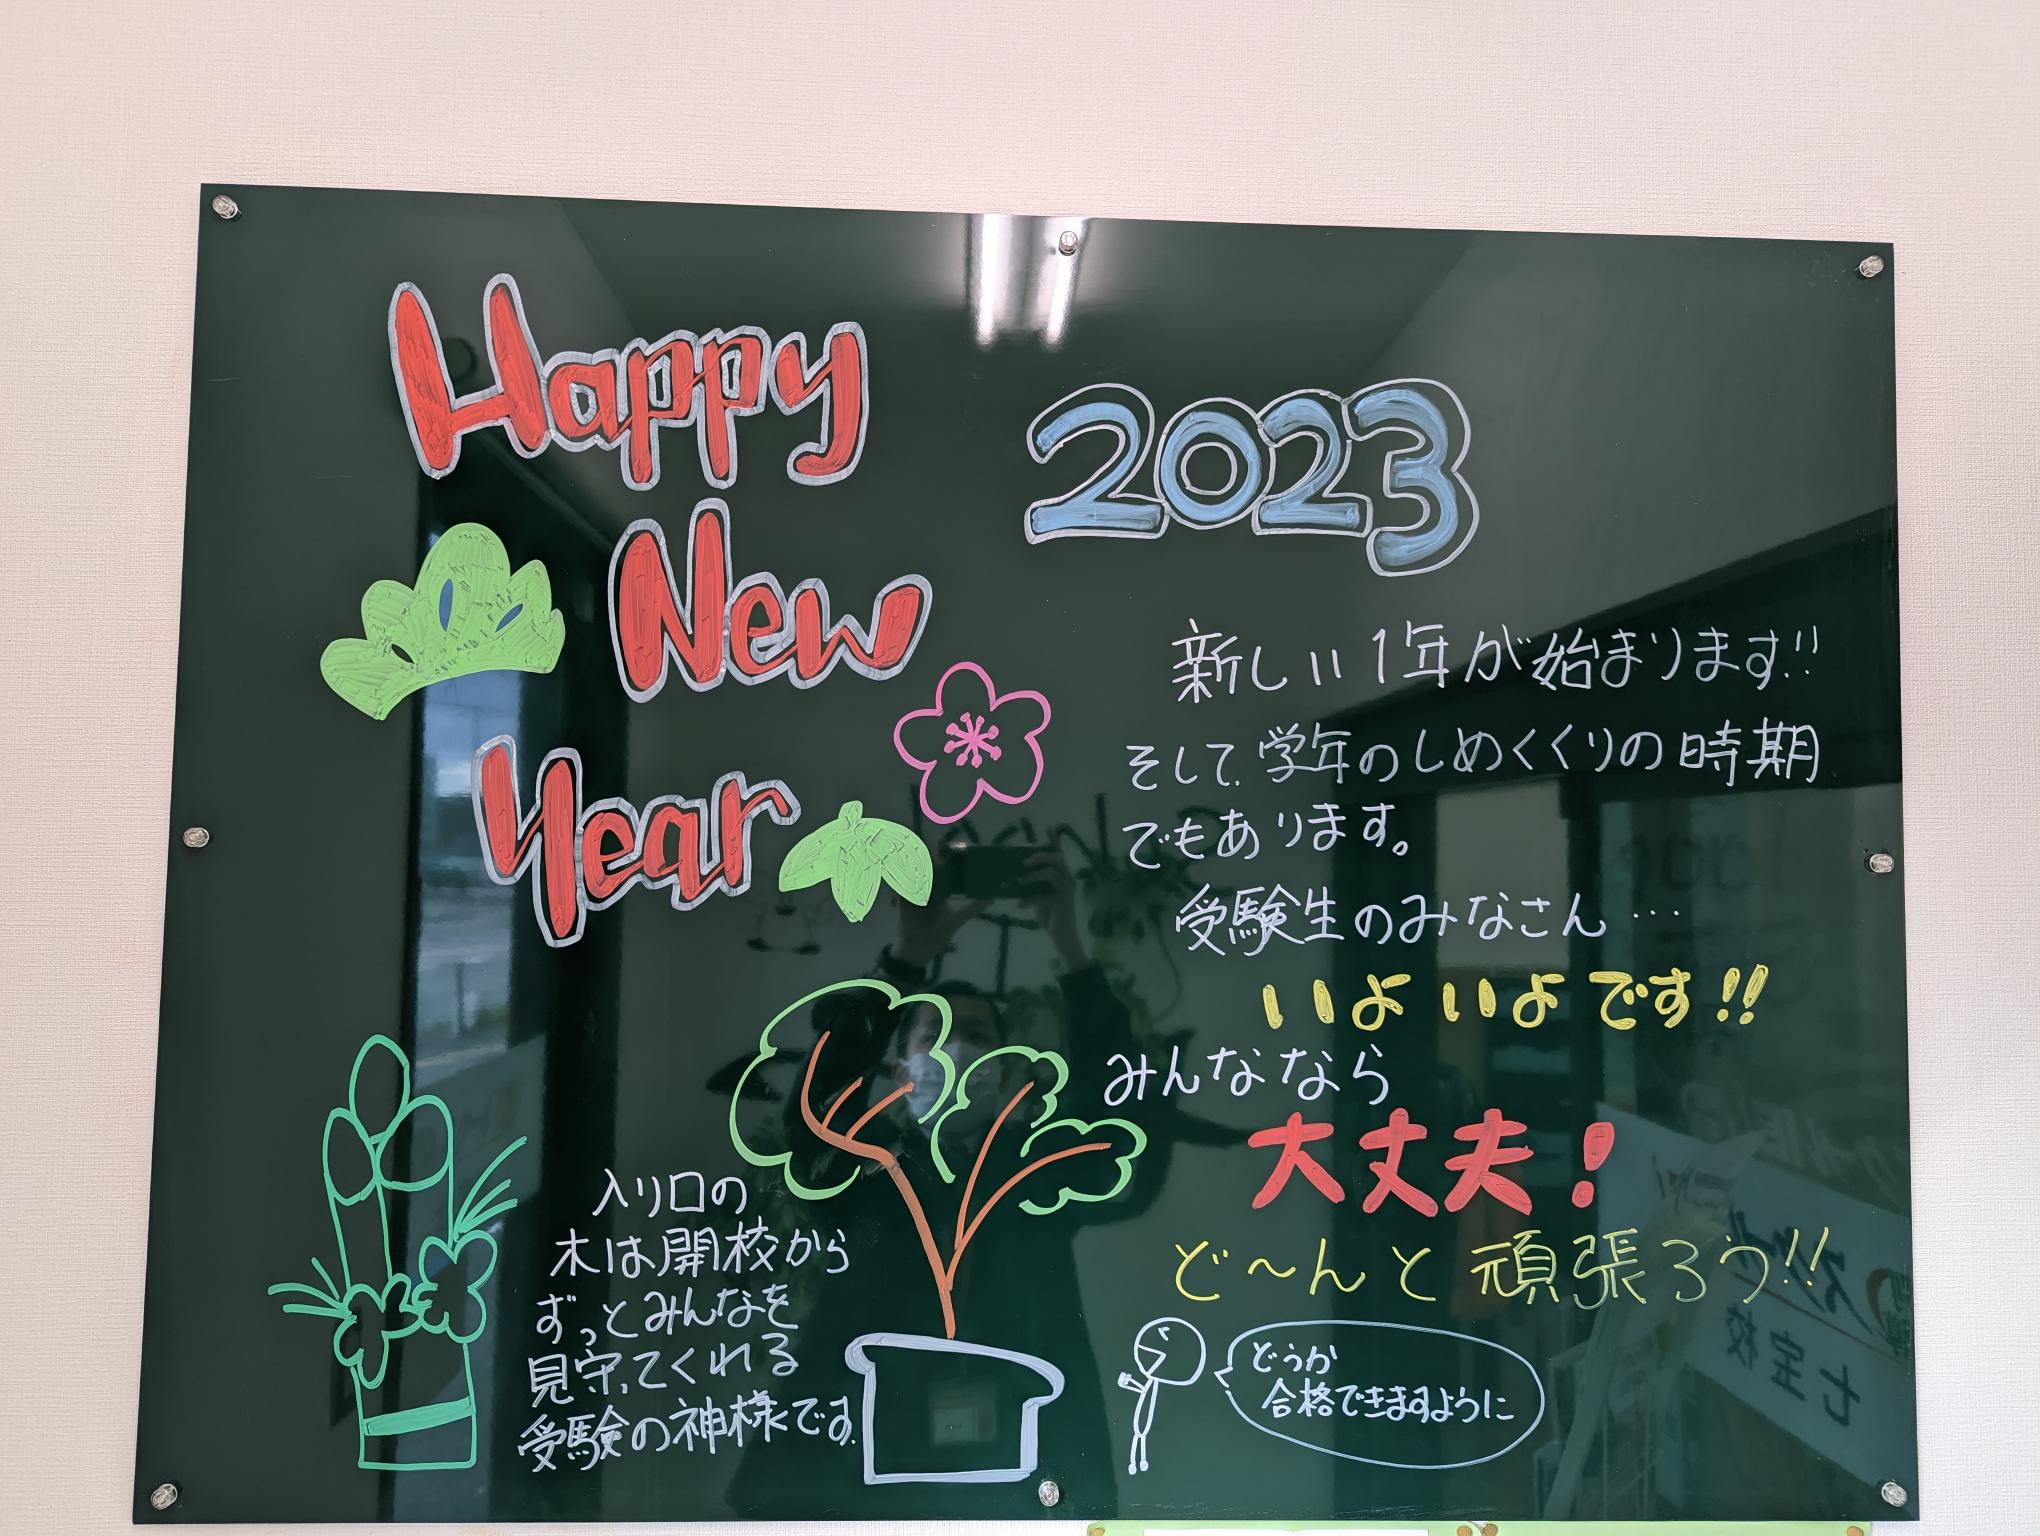 Happy
New
Year
2023
新しい1年が始まります!!
そして、学年のしめくくりの時期
でもあります。
受験生のみなさん…
いよいよです!!
みんななら
大丈夫!
ど〜んと頑張ろう!!
どうか
合格できますように
入り口の
木は開校から
ずっとみんなを
見守ってくれる
受験の神様です。
七宝校